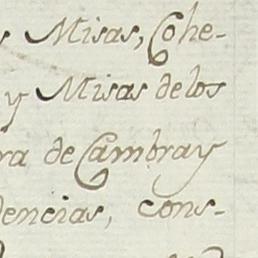 Misas, Cohe-
y Misas de los
ra de Cambray
dencias, cons-